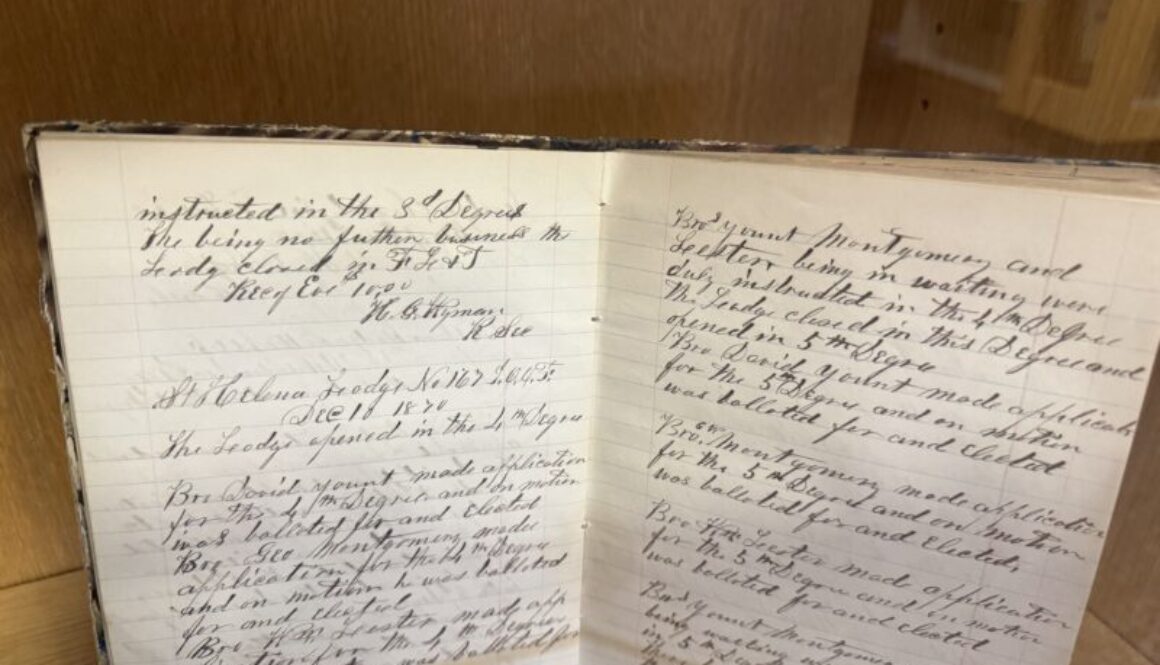 instructed in the 3d Degree
the being no futher business the
Lodg closed in F L & T
Rec of Eve 10.00
H. G. Hyman
R. Sec
St Helena Lodge No 167 I.O.O.F.
Dec 10 1870
The Lodge opened in the 4th Degree
Bro David yount made application
for the 4th Degree and on motion
was balloted for and Elected
Bro Geo Montgomery made
application for the 4th Degree
and on motion he was balloted
for and elected
Bro Wm Lester made app
for the 4th Degree
was balloted for
Bros yount Montgomery and
Lester being in waiting were
duly instructed in the 4th Degree
the Lodge closed in this Degree and
opened in 5th Degree
Bro David yount made applicati
for the 5th Degree and on motion
was balloted for and Elected
Bro Montgomery made application
for the 5th Degree and on motion
was balloted for and Elected
Bro Wm Lester made application
for the 5th Degree and on motion
was balloted for and elected
Bros yount Montgomery
being waiting
in 5th Degree